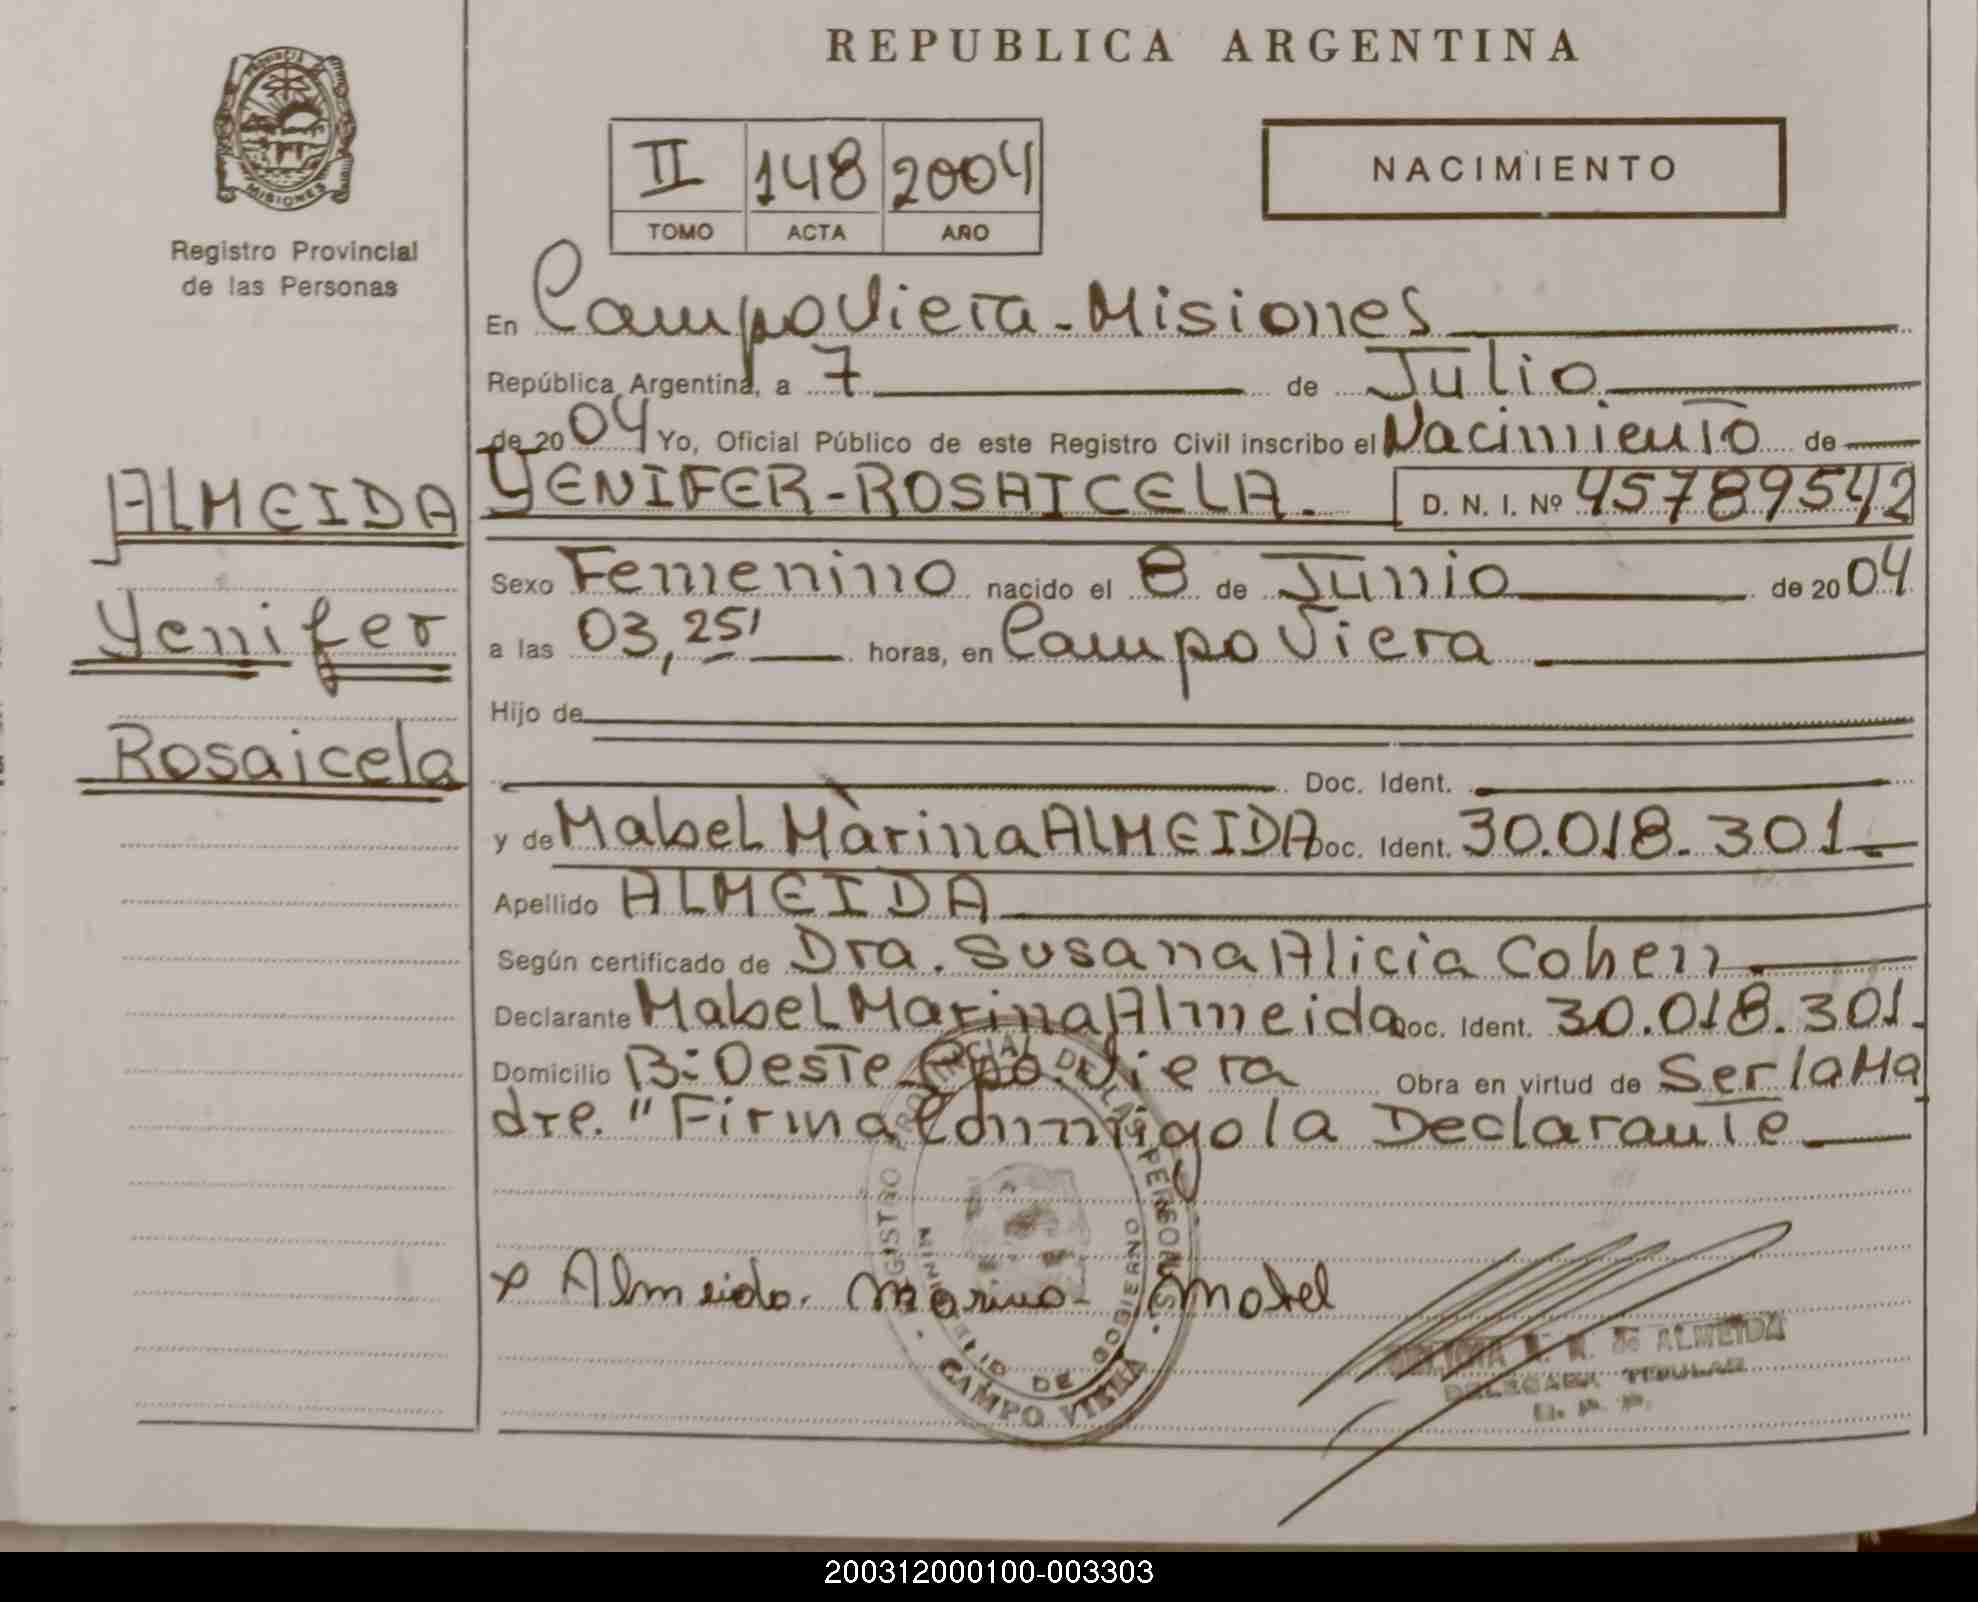 REPUBLICA ARGENTINA
PROVINCIA
MISIONES
Registro Provincial
de las Personas
II 148 2004
TOMO ACTA AÑO
NACIMIENTO
En Campo Viera - Misiones
República Argentina, a 7 de Julio
de 2004 Yo, Oficial Público de este Registro Civil inscribo el Nacimiento de
ALMEIDA
YENIFER - ROSAICELA. D. N. I. Nº 45789542
Sexo Femenino nacido el 8 de Junio de 2004
Yenifer
a las 03,25' horas, en Campo Viera
Hijo de
Rosaicela
Doc. Ident.
y de Mabel Màrina ALMEIDA Doc. Ident. 30.018.301
Apellido ALMEIDA
Según certificado de Dra. Susana Alicia Cohen
Declarante Mabel Marina Almeida Doc. Ident. 30.018.301.
Domicilio B: Oeste Cpo. Viera Obra en virtud de Ser la Ma
dre. " Firma Conmigo la Declarante
REGISTRO PROVINCIAL DE LAS PERSONAS
MINISTERIO DE GOBIERNO
CAMPO VIERA
x Almeida. Marina Mabel
DE ALMEIDA
DELEGADA TITULAR
200312000100-003303